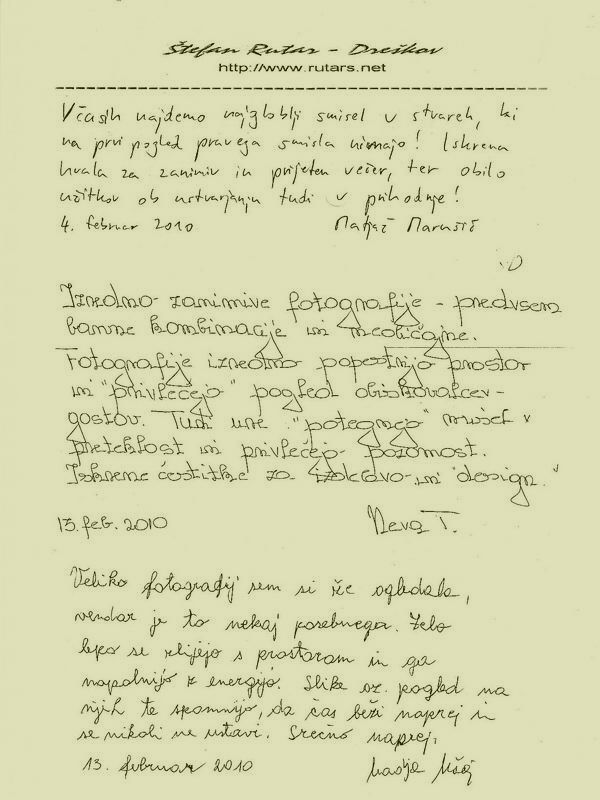 Štefan Rutar - Dreškov
http://www.rutars.net
Včasih najdemo najgloblji smisel v stvareh, ki
na prvi pogled pravega smisla nimajo! Iskrena
hvala za zanimiv in prijeten večer, ter obilo
užitkov ob ustvarjanju tudi v prihodnje!
4. februar 2010 Matjaž Marušič
Izredno zanimive fotografije - predvsem
barvne kombinacije in neobičajne.
Fotografije izredno popestrijo prostor
in "privlečejo" pogled obiskovalcev-
gostov. Tudi ure "potegnejo" misel v
preteklost in privlečejo pozornost.
Iskrene čestitke za izdelavo in "design".
13. feb. 2010 Neva T.
Veliko fotografij sem si že ogledala,
vendar je to nekaj posebnega. Zelo
lepo se zlijejo s prostorom in ga
napolnijo z energijo. Slike oz. pogled na
njih te spomnijo, da čas beži naprej in
se nikoli ne ustavi. Srečno naprej,
13. februar 2010